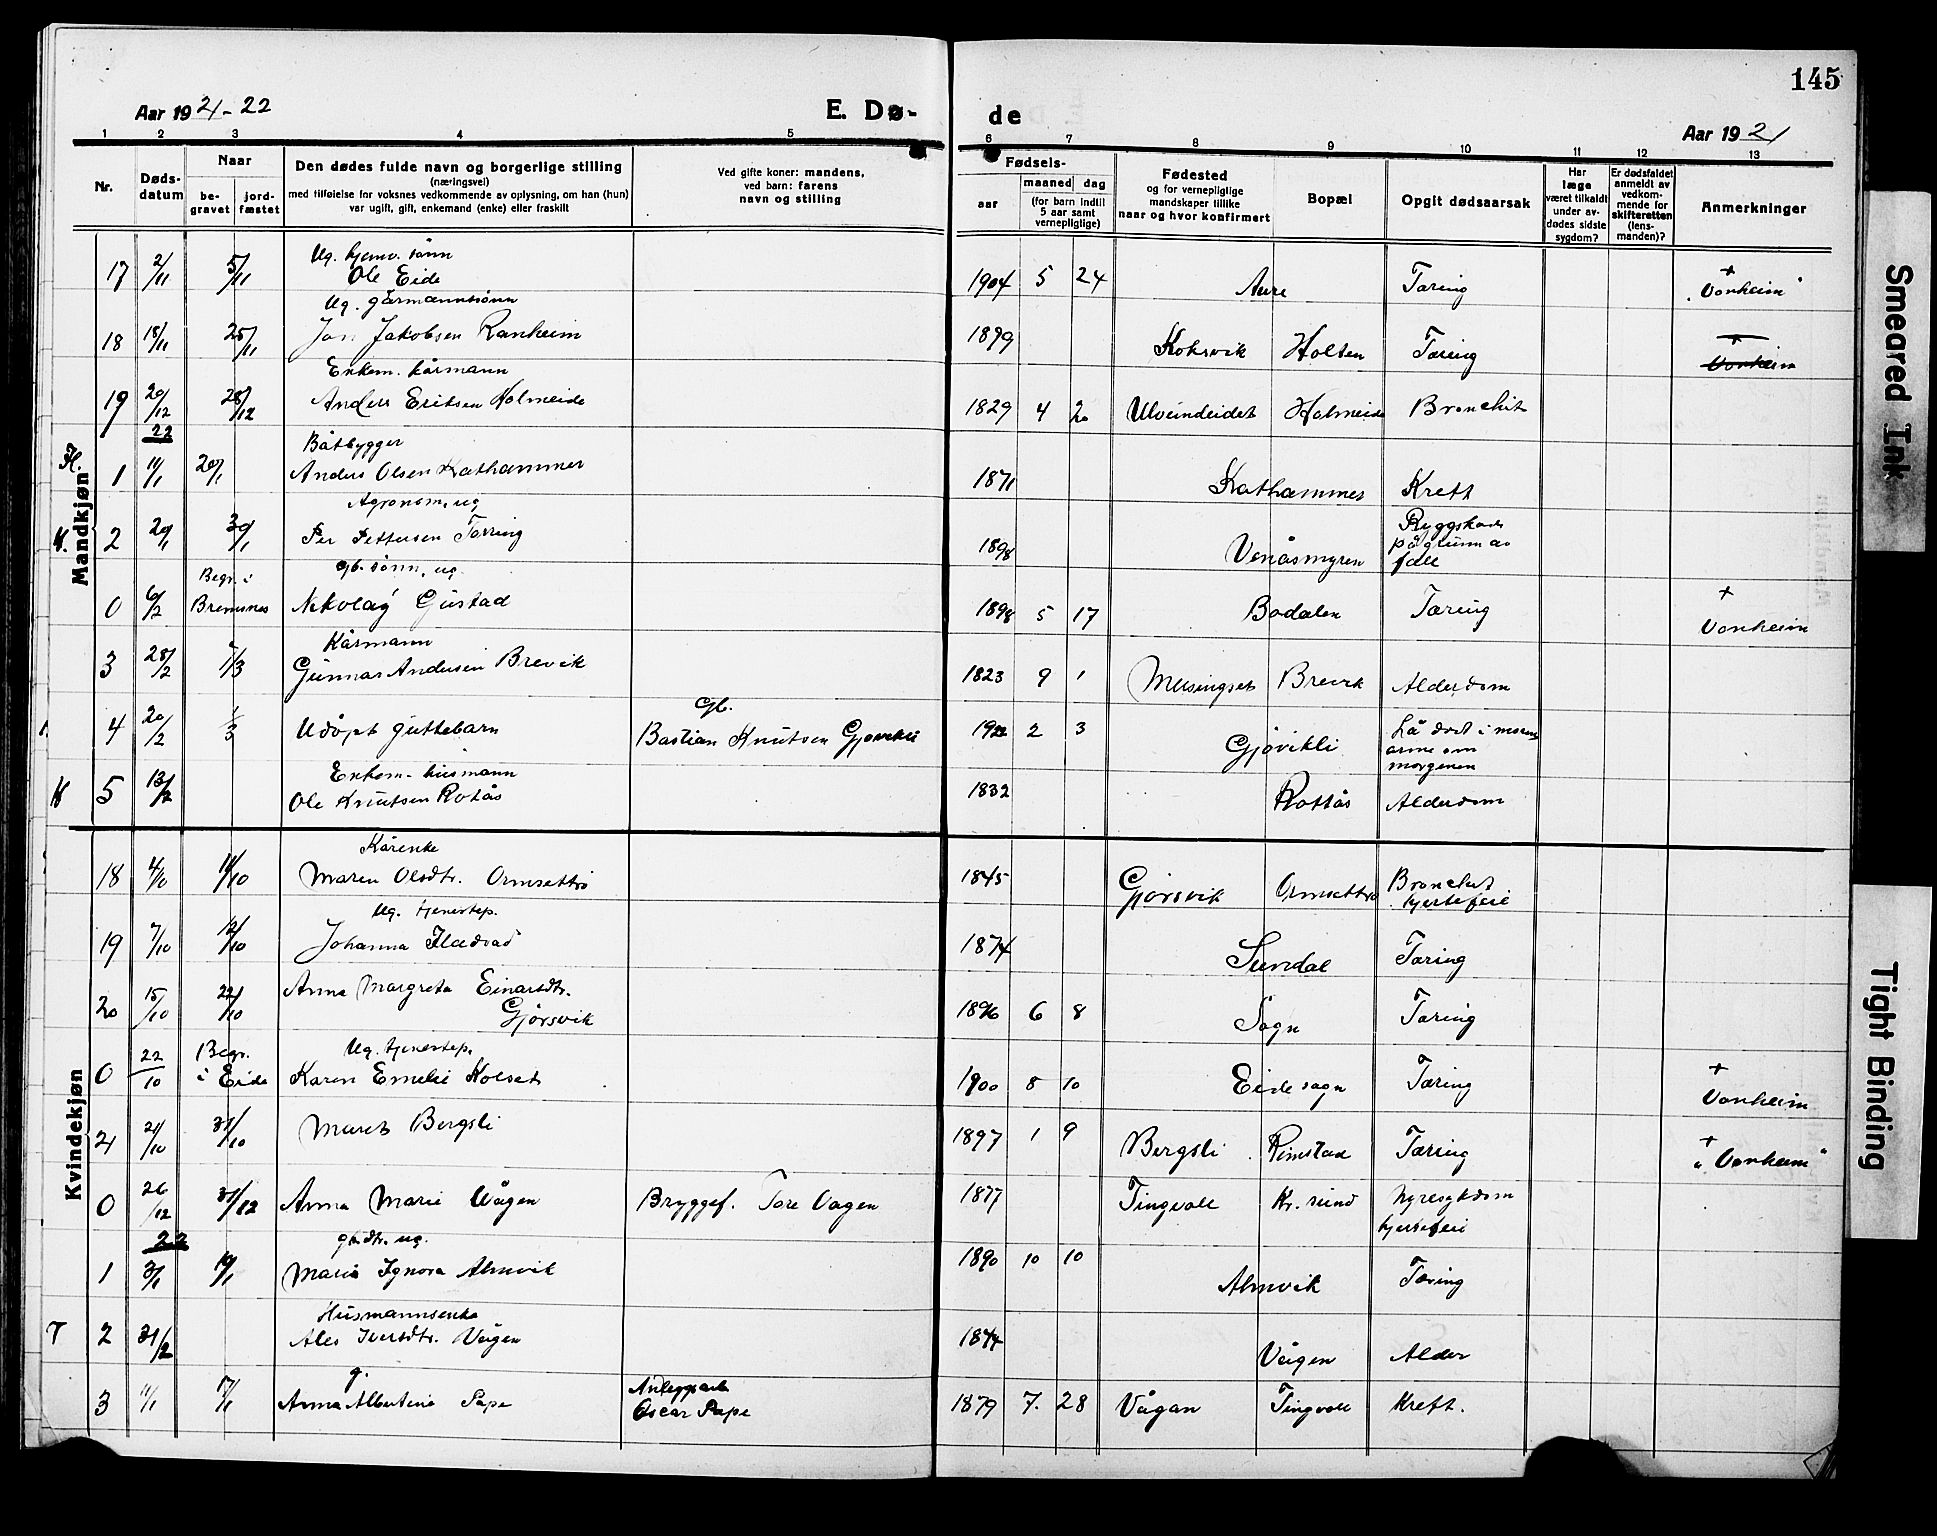 145
Aar 1921-22
E. Dø-
de
Aar 1921
1 2 3 4 5 6 7 8 9 10 11 12 13
Nr.
Døds-
datum
Naar
be-
gravet
jord-
fæstet
Den dødes fulde navn og borgerlige stilling
(næringsvei)
med tilføielse for voksnes vedkommende av oplysning, om han (hun)
var ugift, gift, enkemand (enke) eller fraskilt
Ved gifte koner: mandens,
ved barn: farens
navn og stilling
Fødsels-
aar
maaned dag
(for barn indtil
5 aar samt
vernepligtige)
Fødested
og for vernepligtige
mandskaper tillike
naar og hvor konfirmert
Bopæl
Opgit dødsaarsak
Har
læge
været tilkaldt
under av-
dødes sidste
sygdom?
Er dødsfaldet
anmeldt av
vedkom-
mende for
skifteretten
(lens-
manden)?
Anmerkninger
Mandkjøn
Ug. hjemv. sønn
17 2/11 5/11 Ole Eide 1904 5 24 Aure Tæring + "Vonheim"
Ug. gårmannssønn
18 18/11 25/11 Jon Jakobsen Ranheim 1899 Koksvik Holten Tæring + Vonheim
Enkem. kårmann
19 20/12 28/12 Anders Eriksen Holmeide 1829 4 20 Ulveindeidet Holmeide Bronchit
22
Båtbygger
1 11/1 20/1 Anders Olsen Kathammer 1871 Kathammer Kreft
Agronom, ug.
K. 2 20/1 30/1 Per Pettersen Torring 1898 Venåsmyren Ryggskade
på grunn av
fall
Begr. i gb. sønn, ug.
0 6/2 Bremsnes Nikolay Gustad 1898 5 17 Bodalen Tæring + Vonheim
Kårmann
3 28/2 7/3 Gunnar Andersen Brevik 1823 9 1 Meisingset Brevik Alderdom
Gb.
4 20/2 1/3 Udøpt guttebarn Bastian Knutsen Gjøvikli 1922 2 3 Gjøvikli Lå død i morens
arme om
morgenen
Enkem. husmann
K 5 13/2 Ole Knutsen Rotås 1832 Rottås Alderdom
Kvindekjøn
Kårenke
18 4/10 11/10 Maren Olsdtr. Ormsettrø 1845 Gjørsvik Ormsettrø Bronchit
hjertefeil
Ug. tjenestep.
19 7/10 12/10 Johanna Fladvad 1874 Sundal Tæring
20 15/10 22/10 Anna Margreta Einarsdtr.
Gjørsvik 1896 6 8 Sogn Tæring
Begr. Ug. tjenestep.
0 22/10 i Eide Karen Emelie Kolset 1900 8 10 Eide sogn Tæring + Vonheim
21 21/10 31/10 Maret Bergsli 1897 1 9 Bergsli Rimstad Tæring + "Vonheim"
0 26/12 31/12 Anna Marie Vågen Bryggef. Tore Vagen 1877 Tingvoll Kr. sund Nyresykdom
hjertefeil
22
gb.dtr. ug.
1 3/1 10/1 Maria Ignora Almvik 1890 10 10 Almvik Tæring
Husmannsenke
T 2 31/2 Ales Iversdtr. Vågen 1844 Vågen Alder
g.
3 11/1 17/1 Anna Albertine Pape Anleggsarb.
Oscar Pape 1879 7. 28 Vågan Tingvoll Kreft.
Smeared Ink
Tight Binding